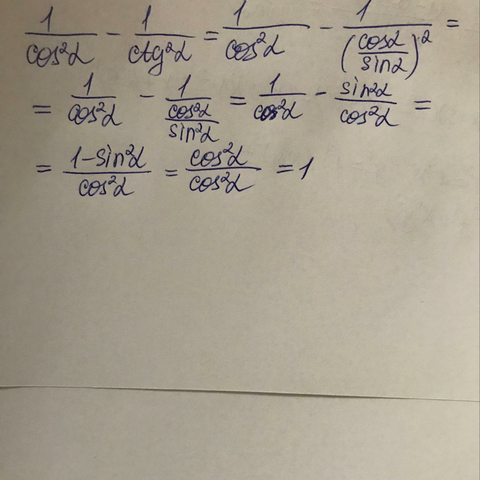 1/cos²α - 1/ctg²α = 1/cos²α - 1/(cosα/sinα)² =
= 1/cos²α - 1/(cos²α/sin²α) = 1/cos²α - sin²α/cos²α =
= (1-sin²α)/cos²α = cos²α/cos²α = 1